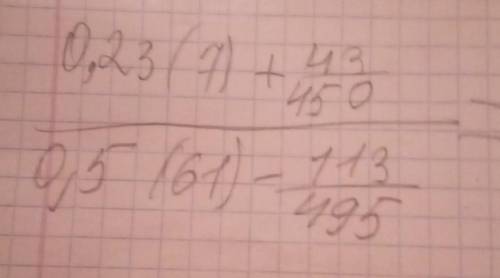 0,23(7) + 43/450
0,5(61) - 113/495 =